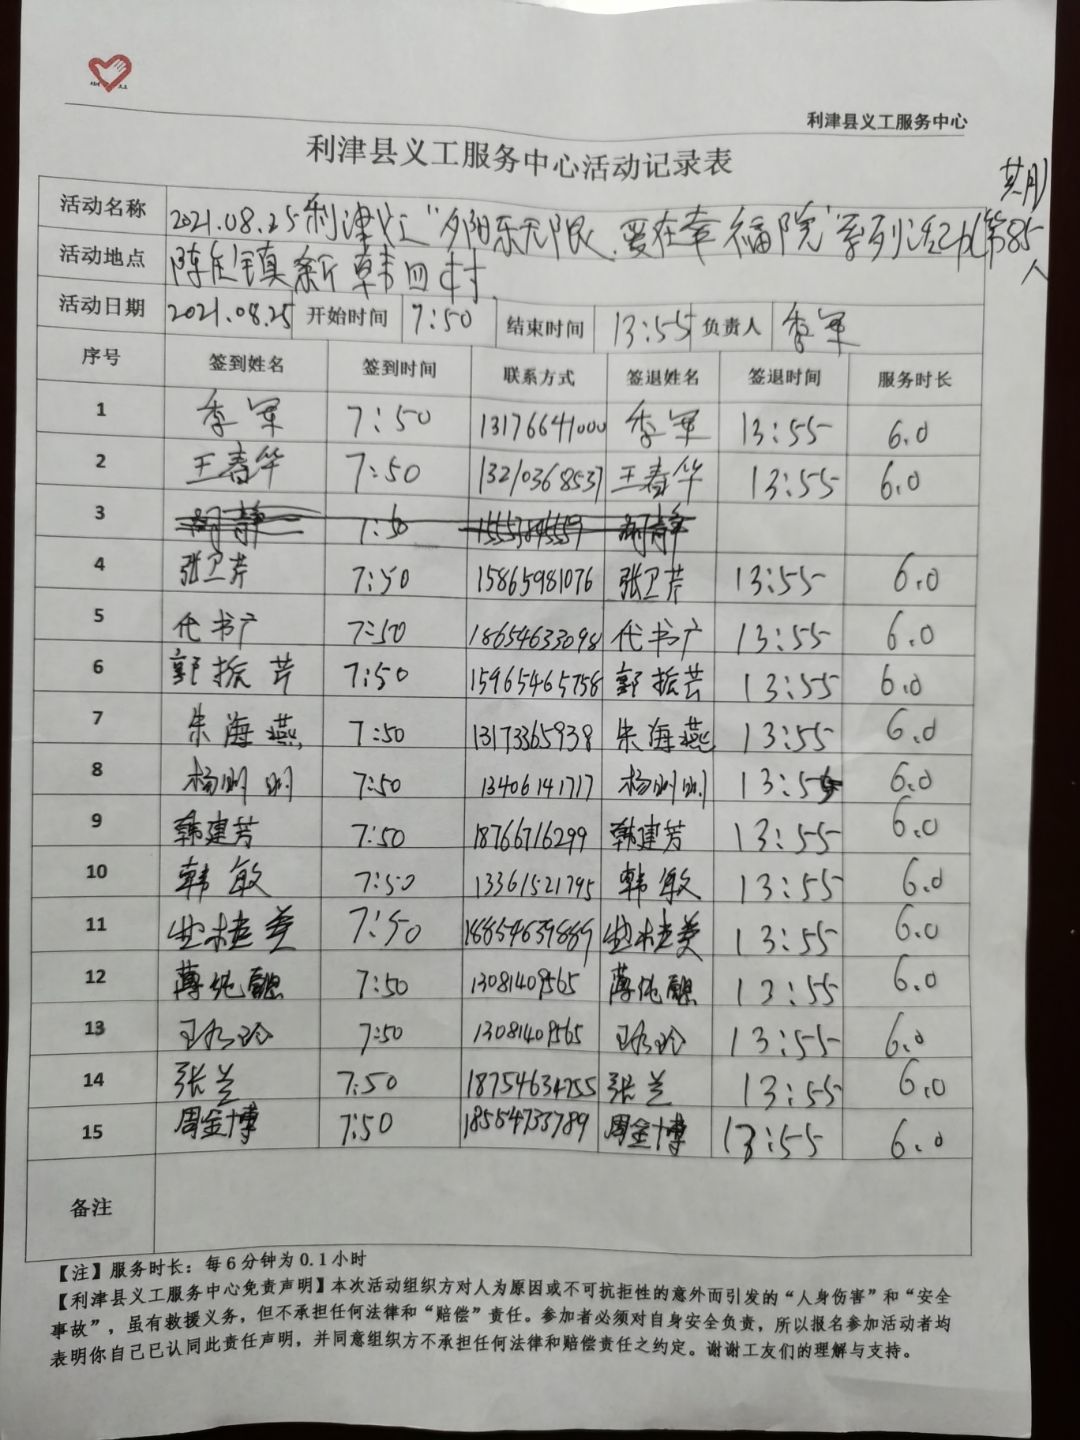 利津县义工服务中心
利津县义工服务中心活动记录表
活动名称 2021.08.25利津义工“夕阳乐无限、爱在幸福院”系列活动(第85
活动地点 陈庄镇新韩四村
人
活动日期 2021.08.25 开始时间 7:50 结束时间 13:55 负责人 季军
序号 签到姓名 签到时间 联系方式 签退姓名 签退时间 服务时长
1 季军 7:50 13176641000 季军 13:55 6.0
2 王春华 7:50 13210368537 王春华 13:55 6.0
3 7:50
4 张卫芹 7:50 15865981076 张卫芹 13:55 6.0
5 代书广 7:50 18654633098 代书广 13:55 6.0
6 郭振芹 7:50 15965465758 郭振芸 13:55 6.0
7 朱海燕 7:50 13173365938 朱海燕 13:55 6.0
8 杨明明 7:50 13406141717 杨明明 13:55 6.0
9 韩建芳 7:50 18766716299 韩建芳 13:55 6.0
10 韩敏 7:50 13361521795 韩敏 13:55 6.0
11 7:50 18854639889 13:55 6.0
12 7:50 13081409565 13:55 6.0
13 7:50 13081409565 13:55 6.0
14 张兰 7:50 18754634755 张兰 13:55 6.0
15 周金博 7:50 18554733789 周金博 13:55 6.0
备注
【注】服务时长：每6分钟为0.1小时
【利津县义工服务中心免责声明】本次活动组织方对人为原因或不可抗拒性的意外而引发的“人身伤害”和“安全
事故”，虽有救援义务，但不承担任何法律和“赔偿”责任。参加者必须对自身安全负责，所以报名参加活动者均
表明你自己已认同此责任声明，并同意组织方不承担任何法律和赔偿责任之约定。谢谢工友们的理解与支持。